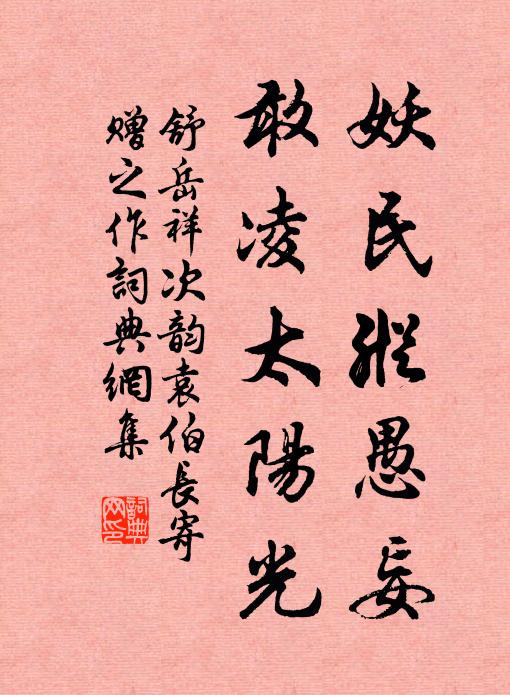 妖民縱愚妄
敢凌太陽光
舒岳祥次韵袁伯長寄
贈之作詞典網集
詞典
网印